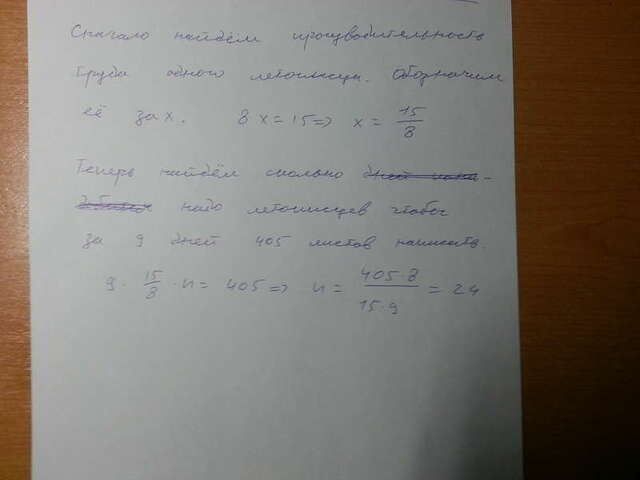 Сначало найдём производительность
труда одного летописца. Обозначим
её за x. 8x=15=> x= 15/8
Теперь найдём сколько
надо летописцев чтобы
за 9 дней 405 листов написать.
9 · 15/8 · n = 405 => n = 405·8/15·9 = 24